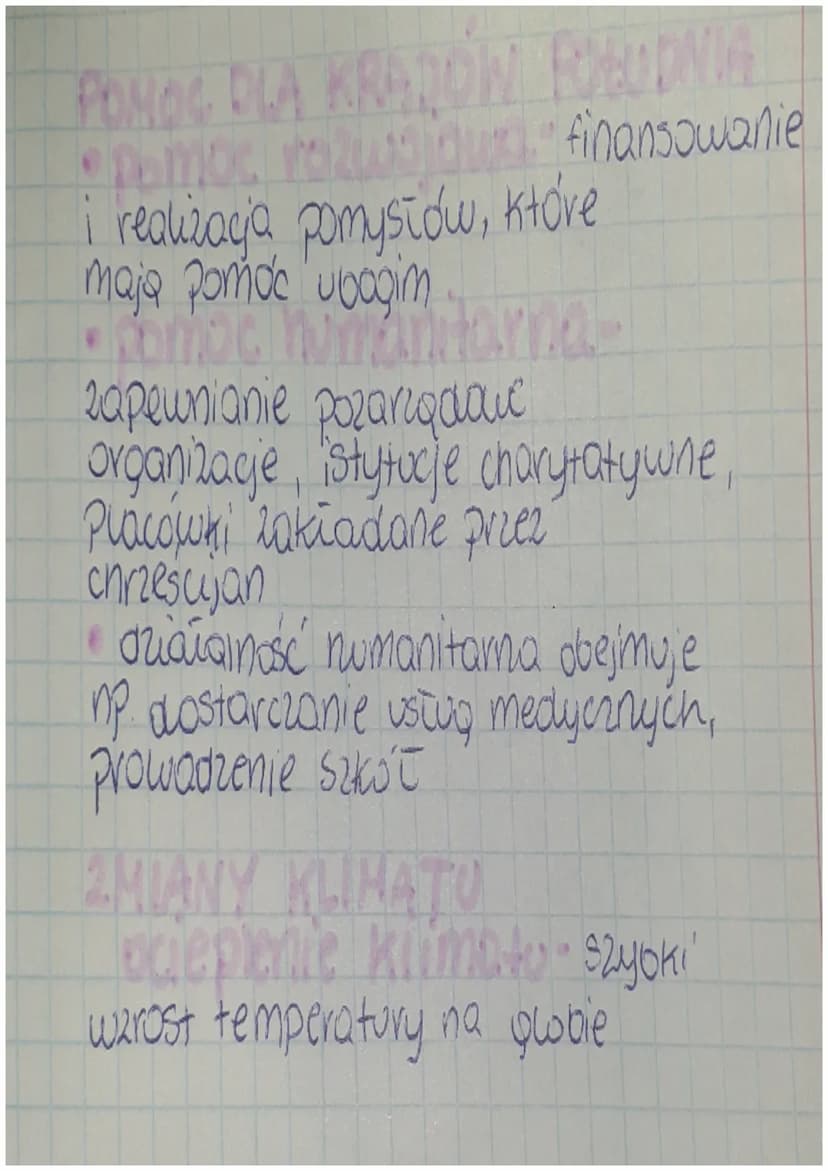 POMOC DLA KRAJÓW POŁUDNIA
• pomoc rozwojowa - finansowanie
i realizacja pomysłów, które
mają pomóc ubogim
• pomoc humanitarna -
zapewnianie pozarządowe
organizacje, istytucje charytatywne,
placówki zakładane przez
chrześcijan
• działalność humanitarna obejmuje
np. dostarczanie usług medycznych,
prowadzenie szkół
ZMIANY KLIMATU
ocieplenie klimatu - szybki
wzrost temperatury na globie